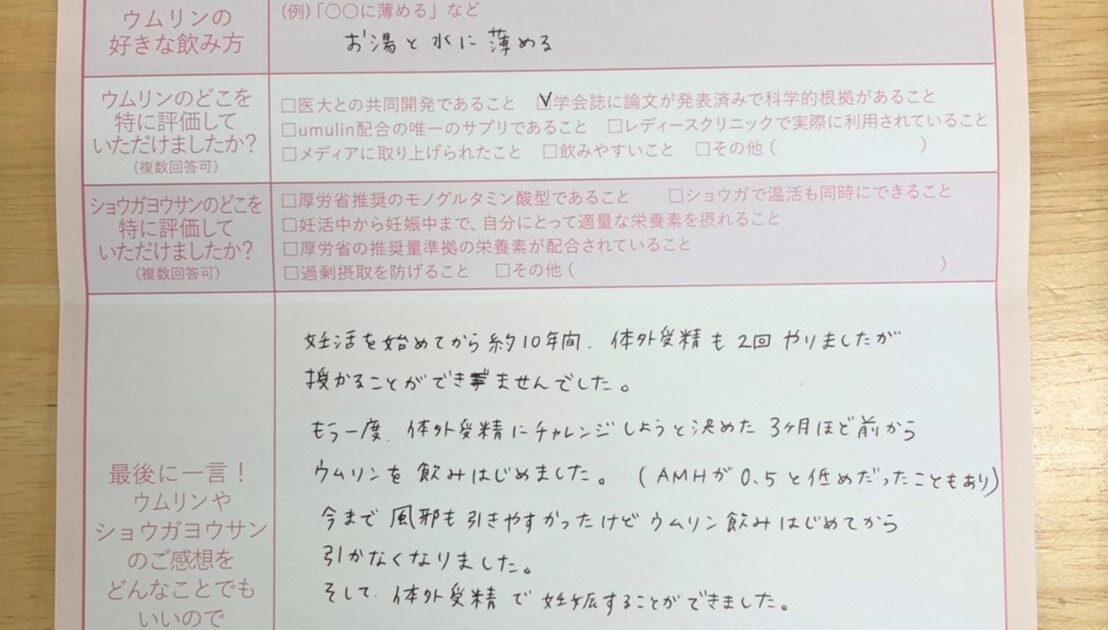 ウムリンの
好きな飲み方
(例)「〇〇に薄める」など
お湯と水に薄める
ウムリンのどこを
特に評価して
いただけましたか?
(複数回答可)
□医大との共同開発であること ☑学会誌に論文が発表済みで科学的根拠があること
□umulin配合の唯一のサプリであること □レディースクリニックで実際に利用されていること
□メディアに取り上げられたこと □飲みやすいこと □その他( )
ショウガヨウサンのどこを
特に評価して
いただけましたか?
(複数回答可)
□厚労省推奨のモノグルタミン酸型であること □ショウガで温活も同時にできること
□妊活中から妊娠中まで、自分にとって適量な栄養素を摂れること
□厚労省の推奨量準拠の栄養素が配合されていること
□過剰摂取を防げること □その他( )
最後に一言!
ウムリンや
ショウガヨウサン
のご感想を
どんなことでも
いいので
妊活を始めてから約10年間、体外受精も2回やりましたが
授かることができませんでした。
もう一度、体外受精にチャレンジしようと決めた3ヶ月ほど前から
ウムリンを飲みはじめました。(AMHが0.5と低めだったこともあり)
今まで風邪も引きやすかったけどウムリン飲みはじめてから
引かなくなりました。
そして、体外受精で妊娠することができました。